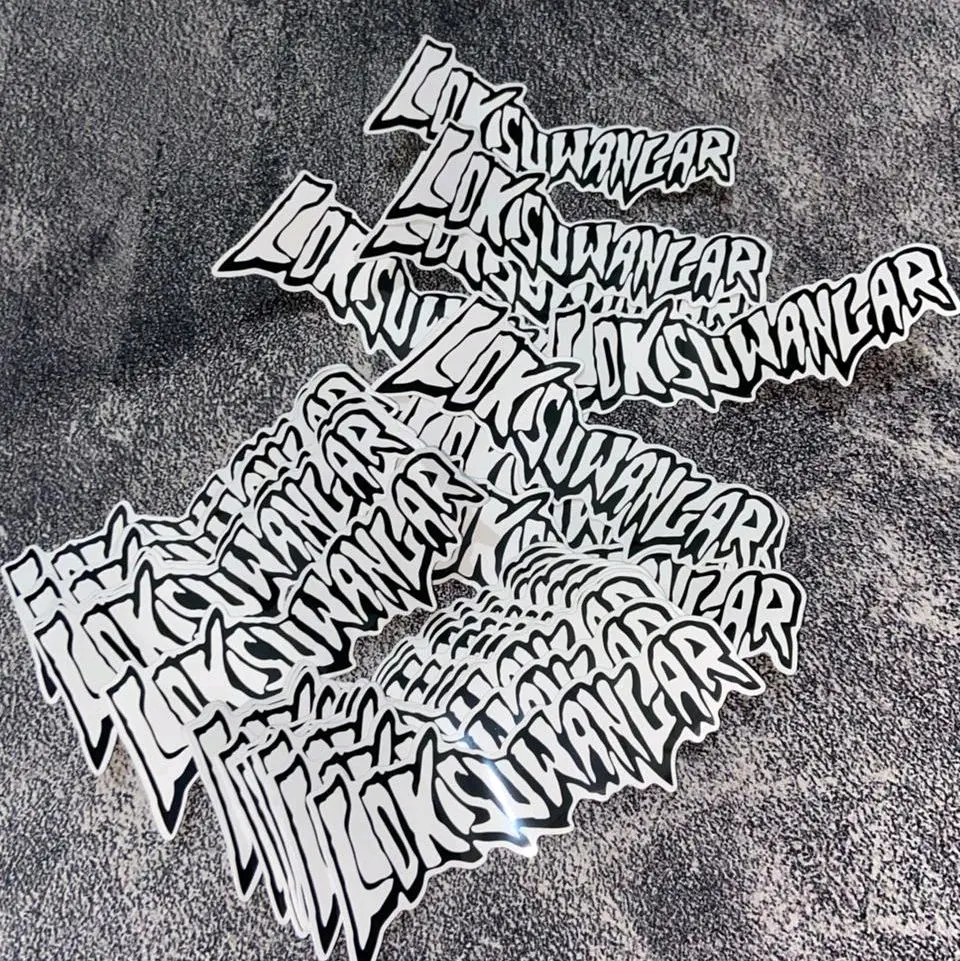 LOKISUWANLAR
LOKISUWANLAR
LOKISUW
LOKISUWANLAR
LOKISUWANLAR
LOKISUWANLAR
LOKISUWANLAR
LOKISUWANLAR